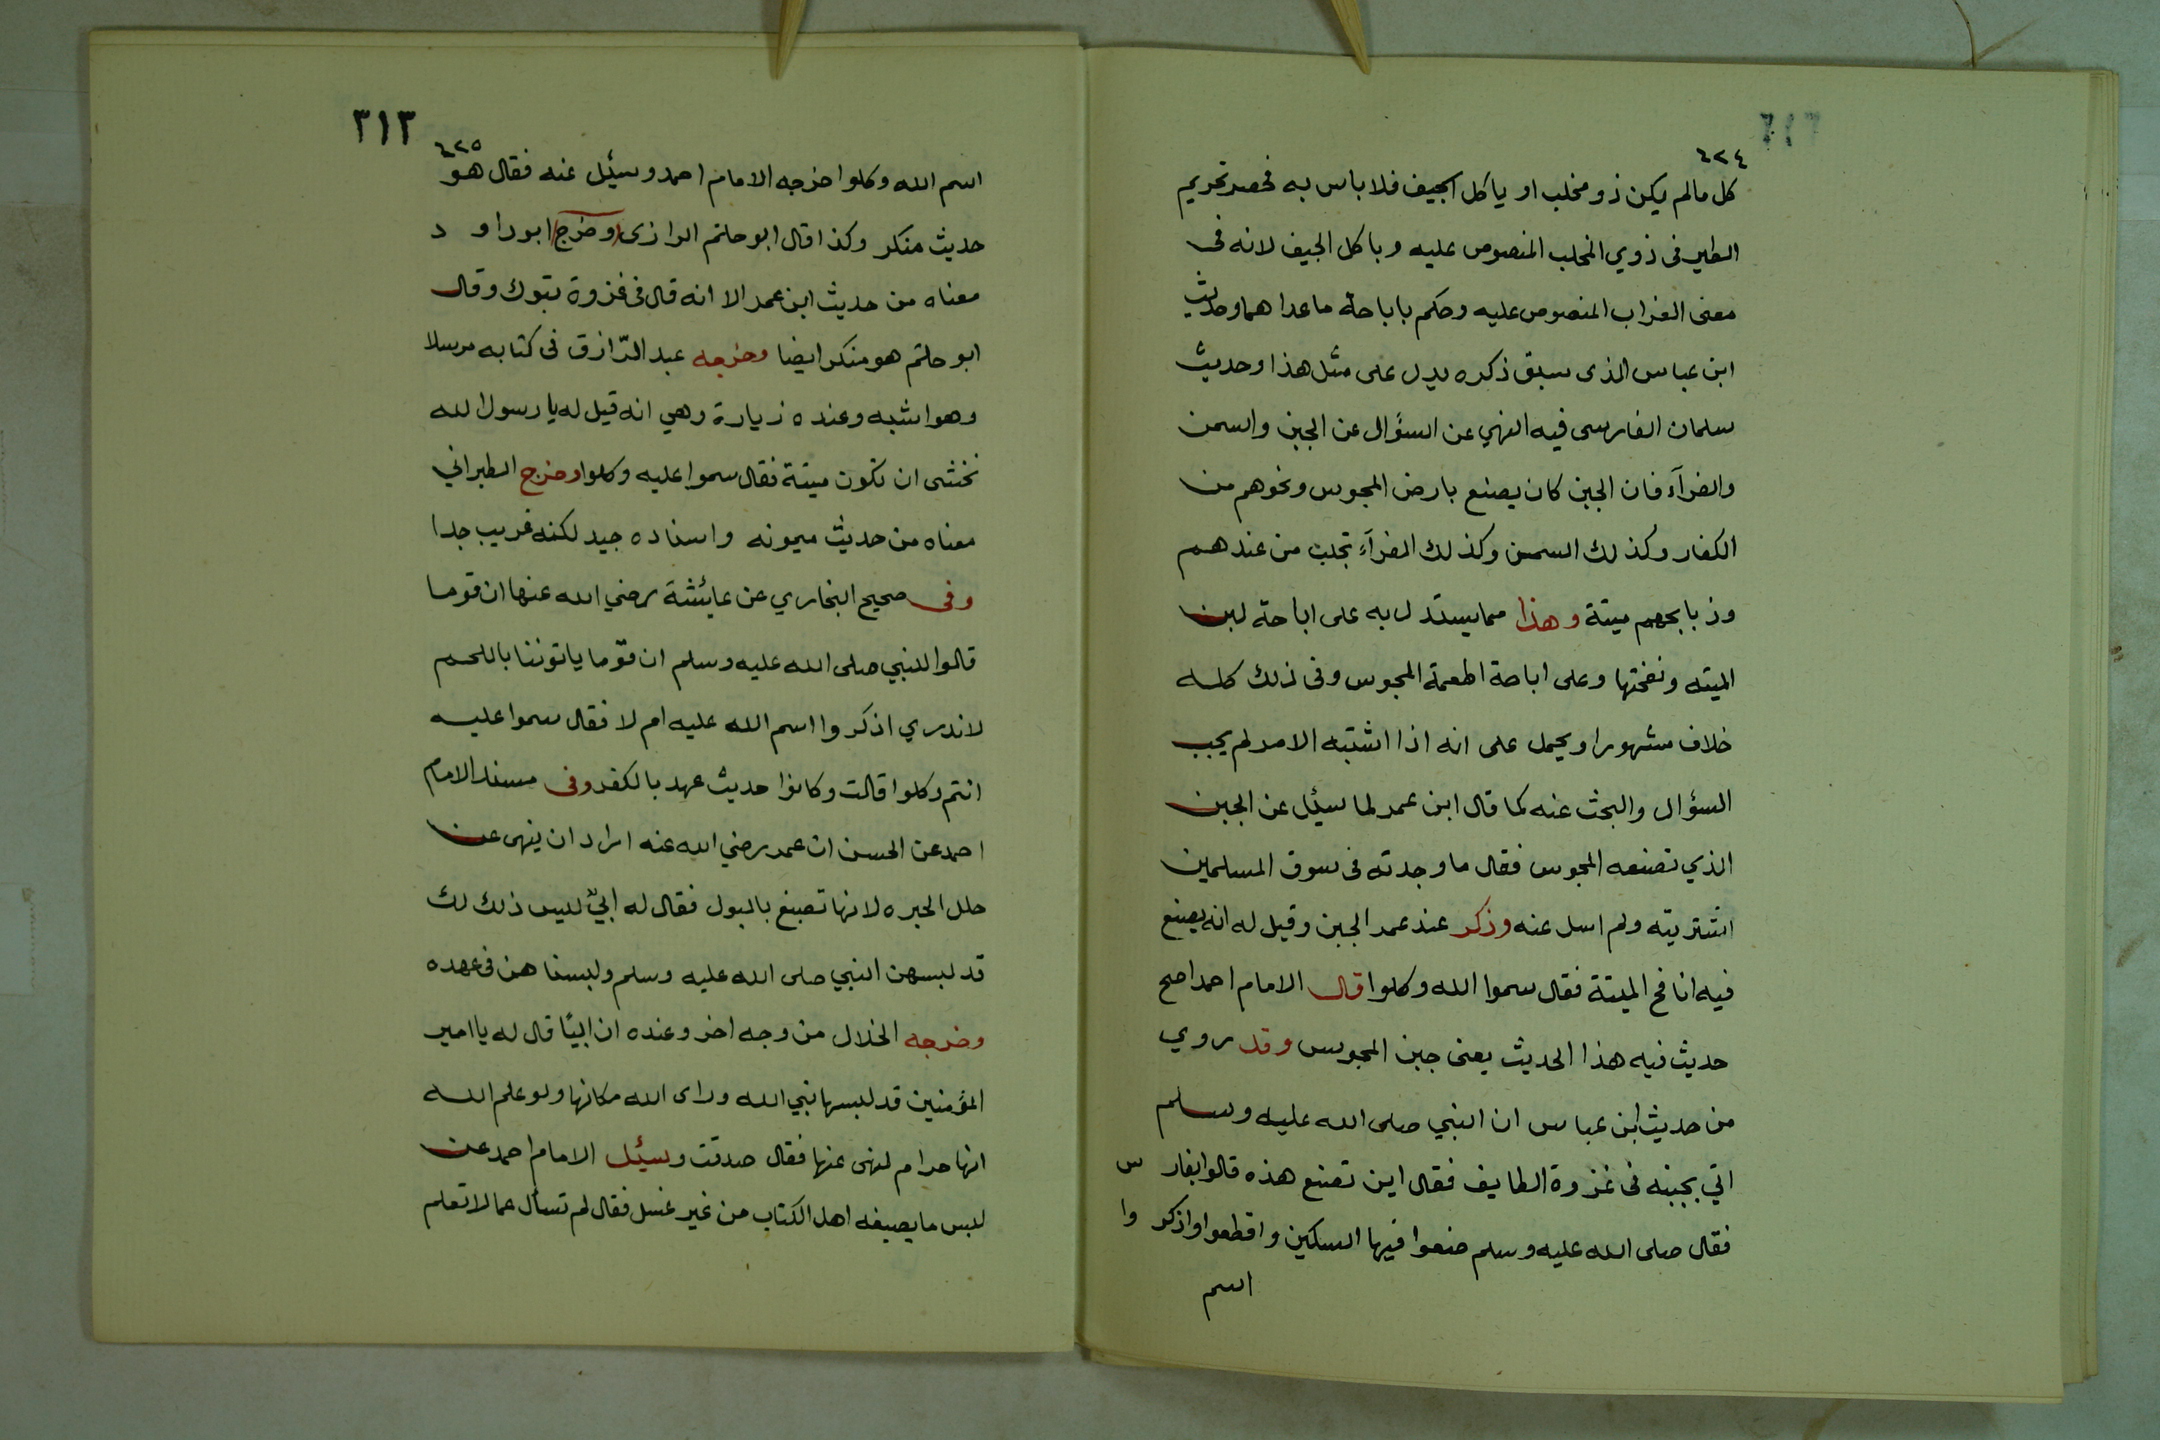 ٦٢٤
كل مالم يكن ذو مخلب او ياكل الجيف فلا باس به فحصر تحريم
الطير فى ذوي المخلب المنصوص عليه وباكل الجيف لانه فى
معنى الغراب المنصوص عليه وحكم باباحة ماعداهما وحديث
ابن عباس الذى سبق ذكره يدل على مثل هذا وحديث
سلمان الفارسى فيه النهي عن السؤال عن الجبن والسمن
والفرآء فان الجبن كان يصنع بارض المجوس ونحوهم من
الكفار وكذلك السمن وكذلك الفرآء تجلب من عندهم
وذبايحهم ميتة وهذا مما يستدل به على اباحة لبن
الميته ونفختها وعلى اباحة اطعمة المجوس وفى ذلك كله
خلاف مشهورا ويحمل على انه اذا اشتبه الامر لم يجب
السؤال والبحث عنه كما قال ابن عمر لما سئل عن الجبن
الذي تصنعه المجوس فقال ما وجدته فى سوق المسلمين
اشتريته ولم اسل عنه وذكر عند عمر الجبن وقيل له انه يصنع
فيه انافح الميتة فقال سموا الله وكلوا قال الامام احمد اصح
حديث فيه هذا الحديث يعنى جبن المجوس وقد روي
من حديث ابن عباس ان النبي صلى الله عليه وسلم
اتي بجبنه فى غزوة الطايف فقال اين تصنع هذه قالوا بفارس
فقال صلى الله عليه وسلم ضعوا فيها السكين واقطعوا واذكروا
اسم
٣١٣
٦٢٥
اسم الله وكلوا خرجه الامام احمد وسئل عنه فقال هو
حديث منكر وكذا قال ابو حاتم الرازى وخرج ابوداود
معناه من حديث ابن عمر الا انه قال فى غزوة تبوك وقال
ابو حاتم هو منكر ايضا وخرجه عبد الرّازق فى كتابه مرسلا
وهو اشبه وعنده زيادة وهي انه قيل له يا رسول الله
نخشى ان تكون ميتة فقال سموا عليه وكلوا وخرج الطبراني
معناه من حديث ميمونه واسناده جيد لكنه غريب جدا
وفى صحيح البخاري عن عايشة رضي الله عنها ان قوما
قالوا للنبي صلى الله عليه وسلم ان قوما ياتوننا باللحم
لاندري اذكروا اسم الله عليه ام لا فقال سموا عليه
انتم وكلوا قالت وكانوا حديث عهد بالكفر وفى مسند الامام
احمد عن الحسن ان عمر رضي الله عنه اراد ان ينهى عن
حلل الحبره لانها تصبغ بالبول فقال له ابيّ ليس ذلك لك
قد لبسهن النبي صلى الله عليه وسلم ولبسناهن فى عهده
وخرجه الخلال من وجه اخر وعنده ان ابيًا قال له يا امير
المؤمنين قد لبسها نبي الله وراى الله مكانها ولو علم الله
انها حرام لنهى عنها فقال صدقت وسئل الامام احمد عن
لبس ما يصبغه اهل الكتاب من غير غسل فقال لم تسأل عما لا تعلم